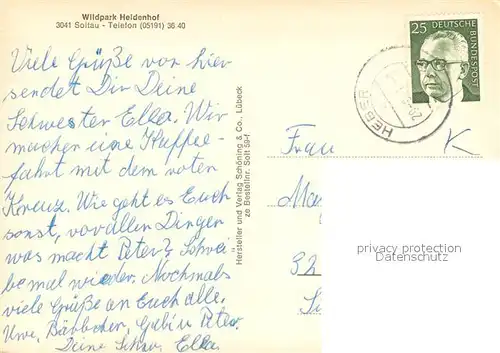 Wildpark Heidenhof
3041 Soltau - Telefon (05191) 36 40
Viele Grüße von hier
sendet Dir Deine
Schwester Ella. Wir
machen eine Kaffee-
fahrt mit dem roten
Kreuz. Wie geht es Euch
sonst, vor allen Dingen
was macht Peter? Schrei
be mal wieder. Nochmals
viele Grüße an Euch alle.
Uwe, Bärbchen, Gabi u Peter.
Deine Schw. Ella.
Hersteller und Verlag Schöning & Co., Lübeck
Bestellnr. Solt
25 DEUTSCHE BUNDESPOST
HEBER
Frau K
32
privacy protection
Datenschutz